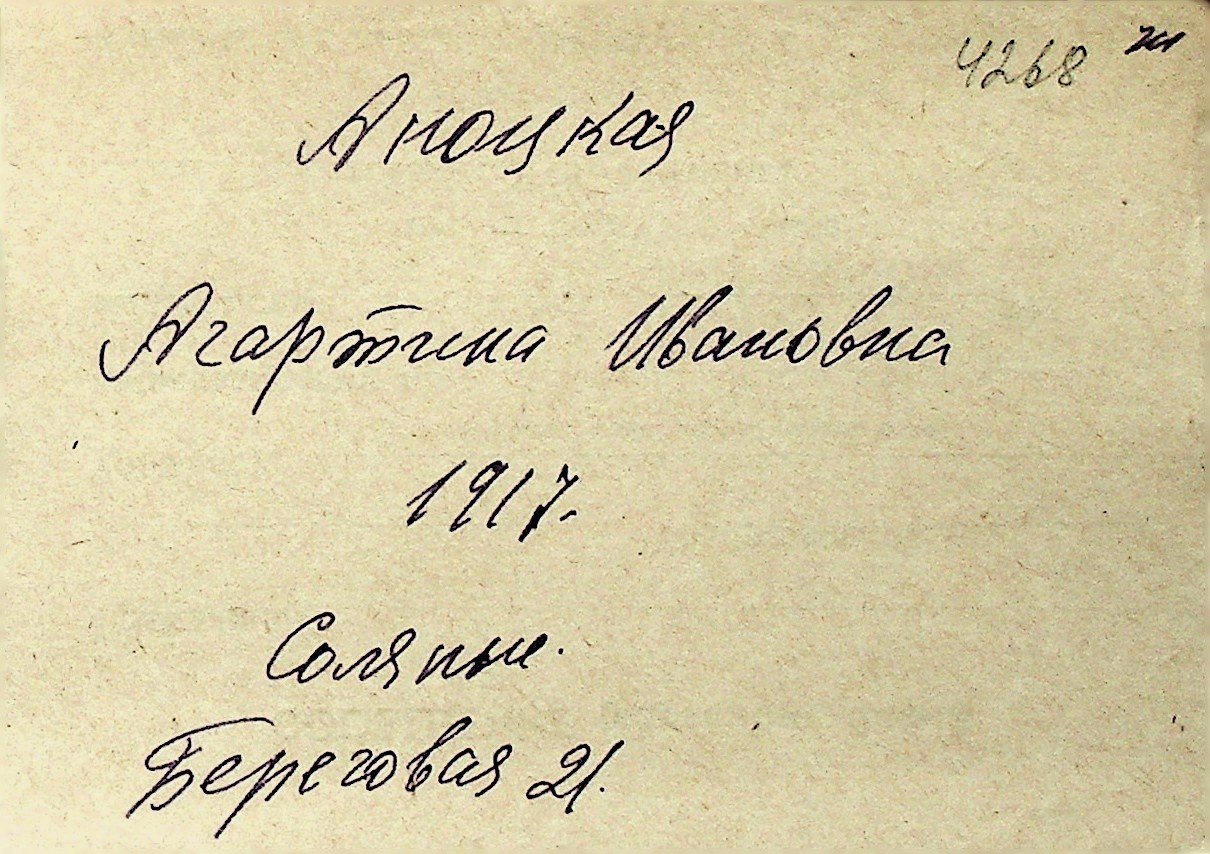 4268 ж
Аноцкая
Агартина Ивановна
1917.
Соляные.
Береговая 21.